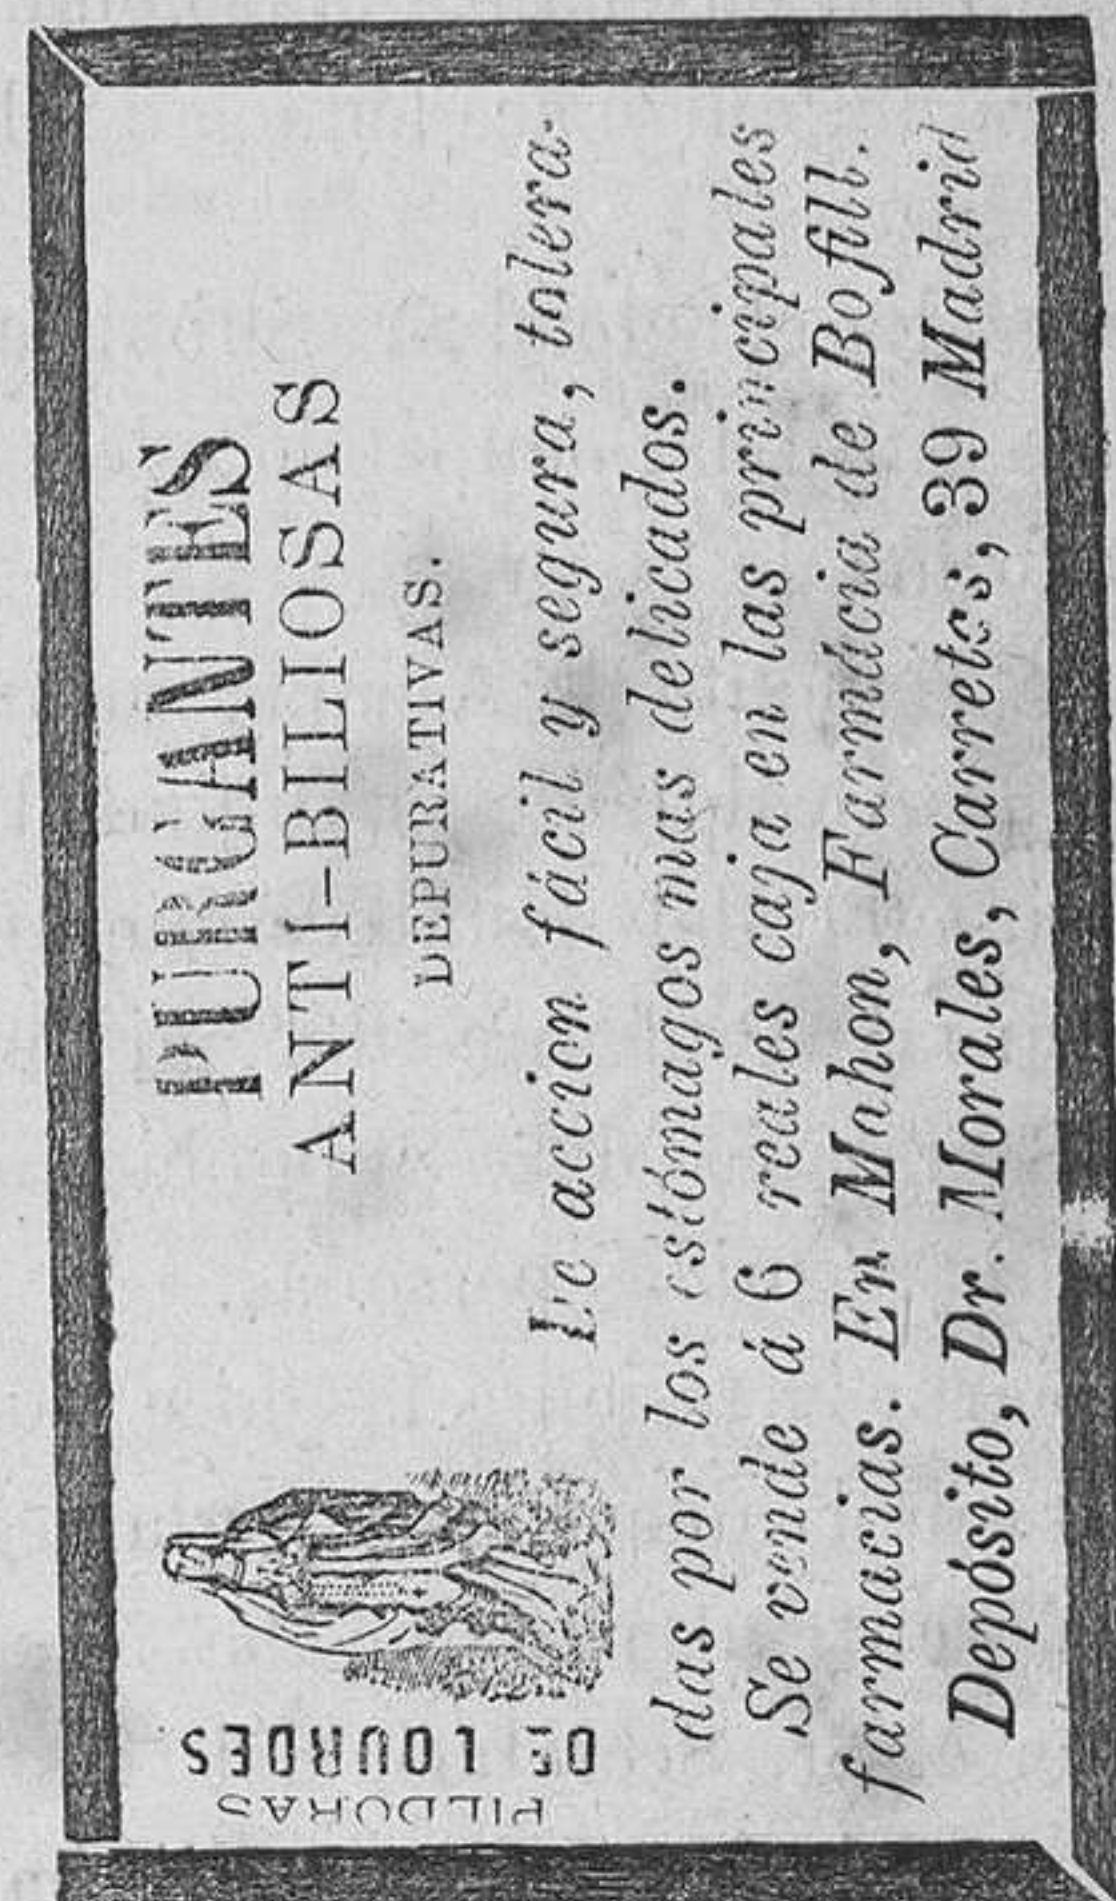 PILDORAS
DE LOURDES
PURGANTES
ANTI-BILIOSAS
DEPURATIVAS.
De accion fácil y segura, tolera-
das por los estómagos mas delicados.
Se vende á 6 reales caja en las principales
farmacias. En Mahon, Farmácia de Bofill.
Depósito, Dr. Morales, Carretas, 39 Madrid